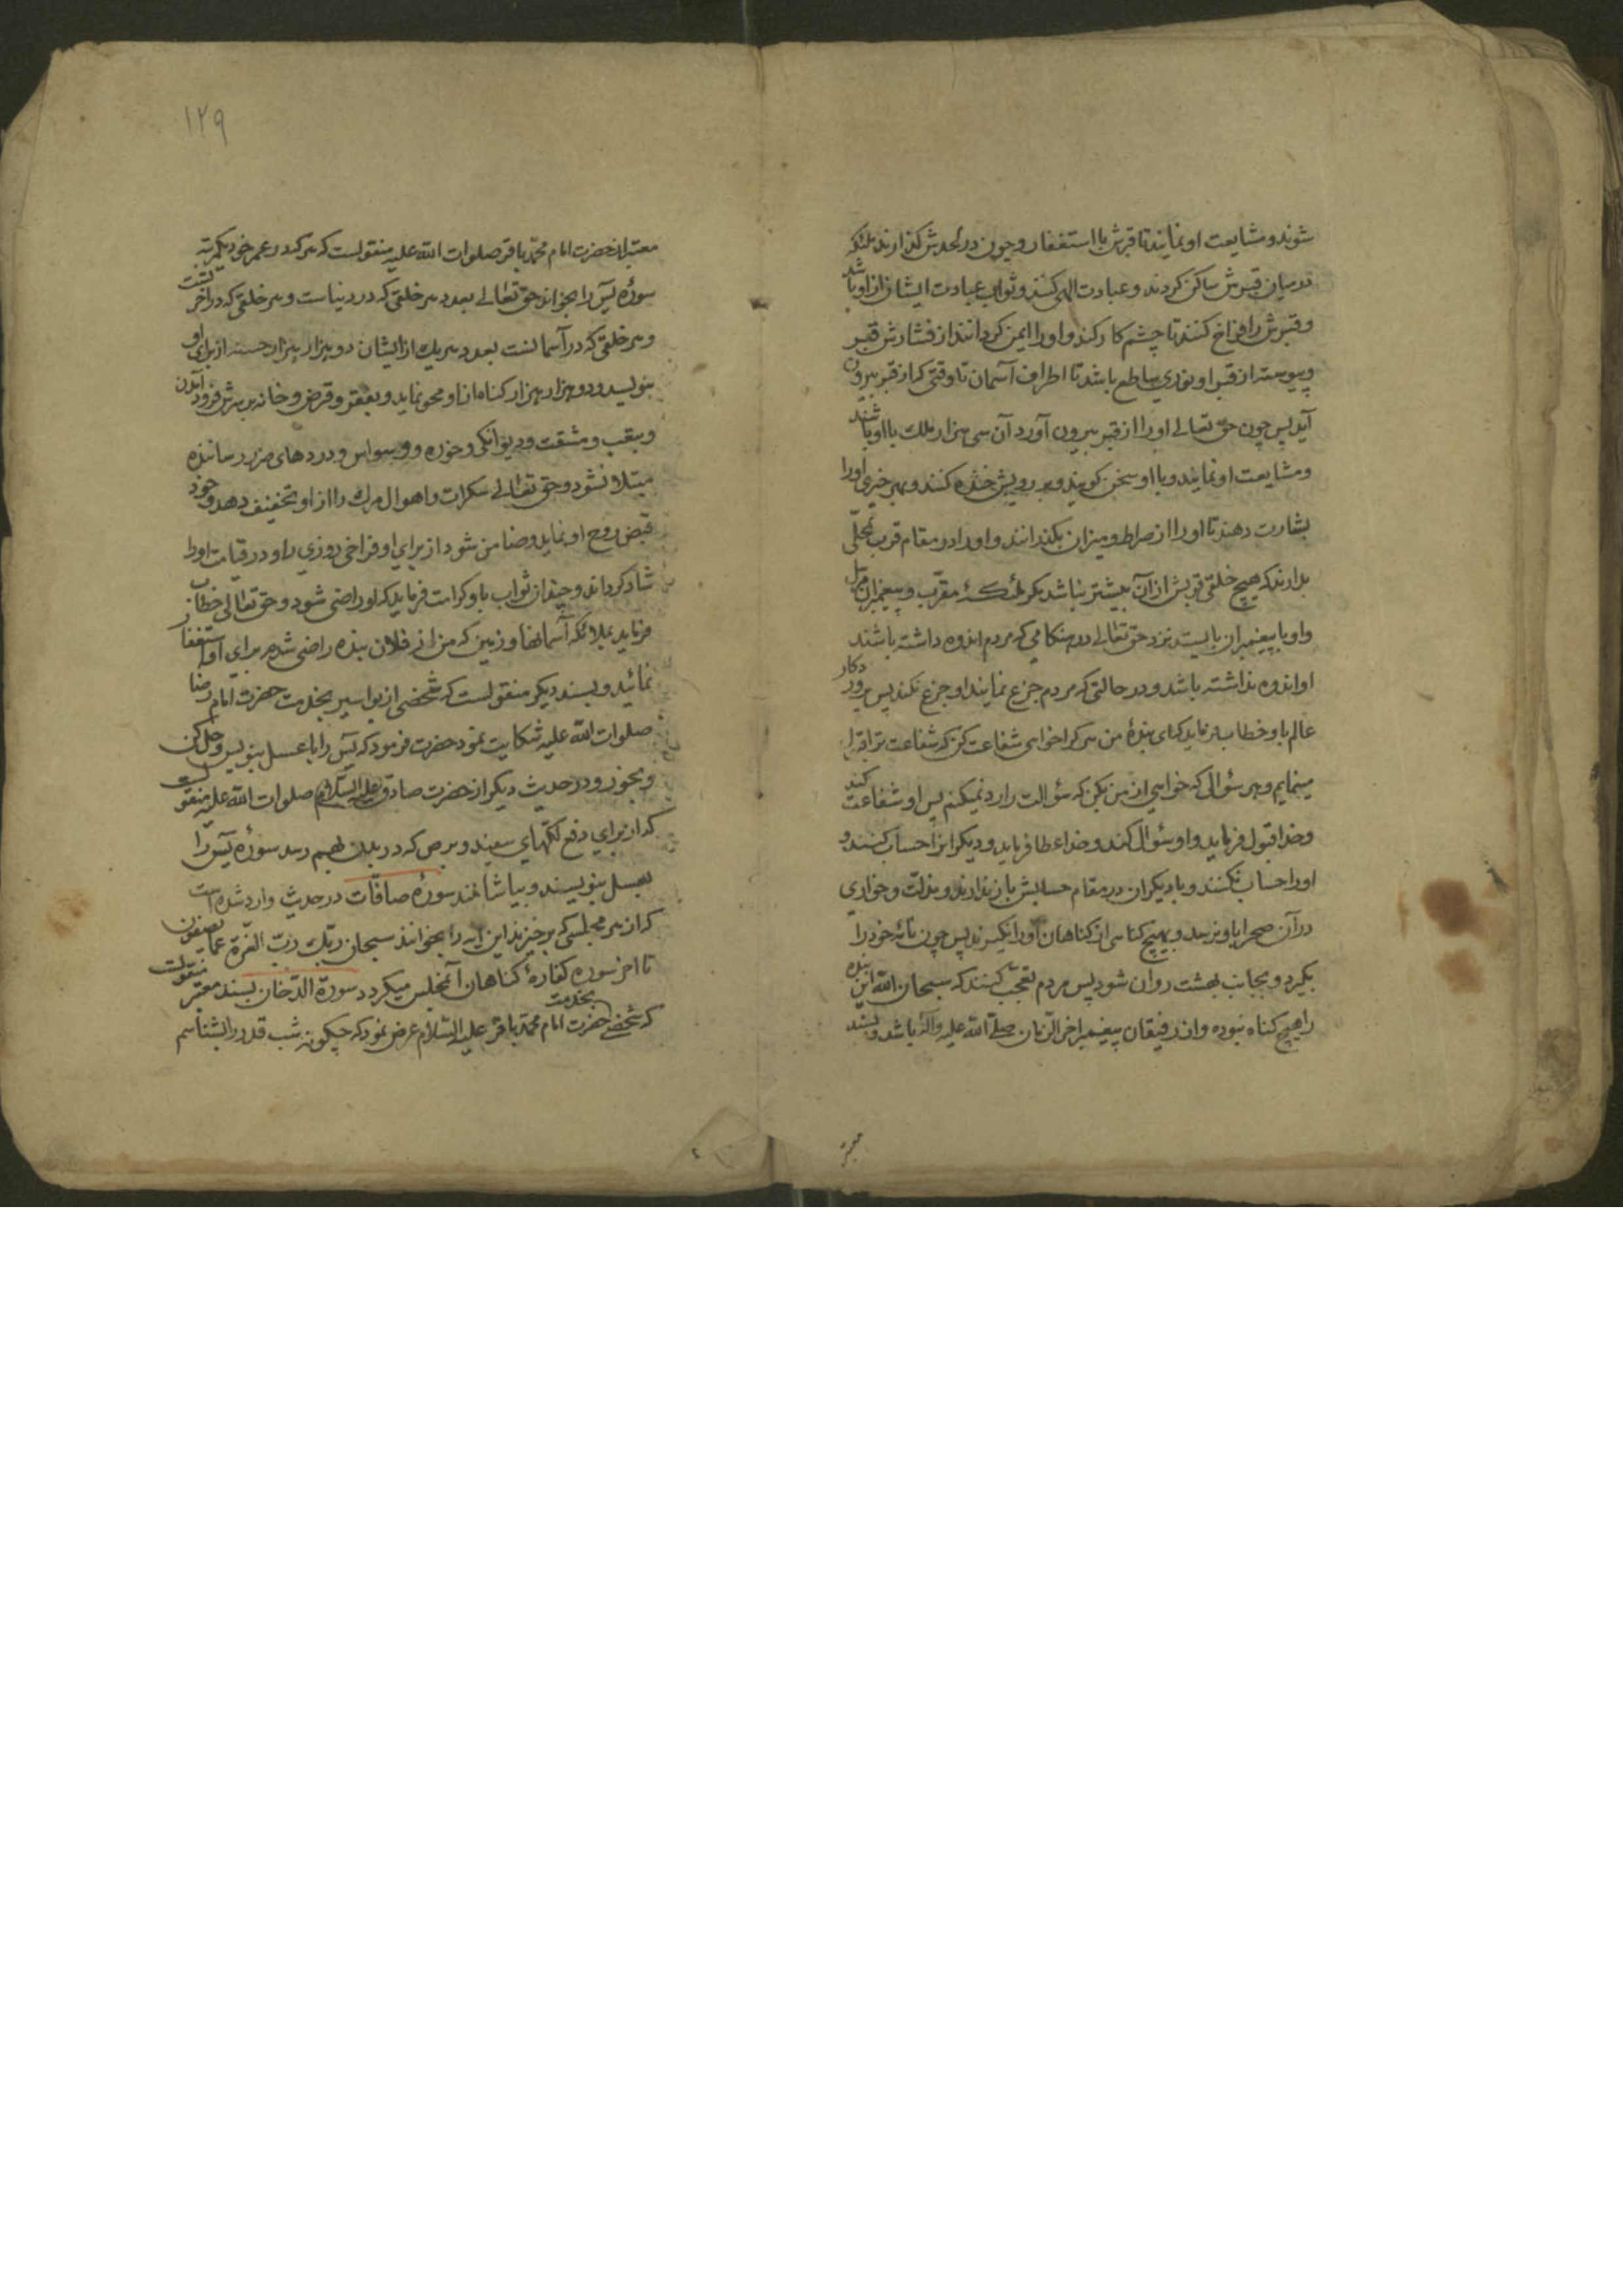 شوند و مشایعت او نمایند تا قبرش با استغفار و چون در لحدش گذارند ملئکه
در میان قبرش ساکن گردند و عبادت الهی کنند و ثواب عبادت ایشان از او باشد
و قبرش را فراخ کنند تا چشم کار کند و او را ایمن گردانند از فشارش قبر
و پیوسته از قبر او نوری ساطع باشد تا اطراف آسمان تا وقتی که از قبر بیرون
آید پس چون حق تعالی او را از قبر بیرون آورد آن سی هزار ملک با او باشند
و مشایعت او نمایند و با او سخن گویند و بر رویش خنده کنند و بهر خیری او را
بشارت دهند تا او را از صراط و میزان بگذرانند و او را در مقام قرب محلّی
بدارند که هیچ خلقی قربش از آن بیشتر نباشد مگر ملئکهٔ مقرّب و پیغمبران مرسل
و او با پیغمبران بایستد نزد حق تعالی در هنگامی که مردم اندوه داشته باشند
او اندوه نداشته باشد و در حالتی که مردم جزع نمایند او جزع نکند پس پروردگار
عالم باو خطاب فرماید که ای بندهٔ من هر که را خواهی شفاعت کن که شفاعت ترا قبول
مینمایم و هر سؤال که خواهی از من بکن که سؤالت را رد نمیکنم پس او شفاعت کند
و خدا قبول فرماید و او سؤال کند و خدا عطا فرماید و دیگرانرا حساب کنند و
او را حساب نکنند و با دیگران در مقام حسابش باز ندارند و مذلّت و خواری
در آن صحرا باو نرسد و بهیچ گناهی از گناهان او را نگیرند پس چون نامهٔ خود را
بگیرد و بجانب بهشت روان شود پس مردم تعجّب کنند که سبحان اللّه این بنده
را هیچ گناه نبوده و از رفیقان پیغمبر اخر الزّمان صلّی اللّه علیه و آله باشد و بسند
معتبر
۱۲۹
معتبر از حضرت امام محمّد باقر صلوات اللّه علیه منقولست که هر که در عمر خود یکمرتبه
سورهٔ یس را بخواند حق تعالی بعدد هر خلقی که در دنیاست و هر خلقی که در آخرتست
و هر خلقی که در آسمانست بعدد هر یک از ایشان دو هزار هزار حسنه از برای او
بنویسد و دو هزار هزار گناه از او محو نماید و بفقر و قرض و خانه بر سرش فرود آمدن
و بتعب و مشقت و دیوانگی و خوره و وسواس و دردهای ضرر رساننده
مبتلا نشود و حق تعالی سکرات و اهوال مرک را از او تخفیف دهد و خود
قبض روح او نماید و ضامن شود از برای او فراخی روزی را و در قیامت او را
شاد گرداند و چندان ثواب باو کرامت فرماید که او راضی شود و حق تعالی خطاب
فرماید بملائکه آسمانها و زمین که من از فلان بنده راضی شدم برای او استغفار
نمائید و بسند دیگر منقولست که شخصی از بواسیر بخدمت حضرت امام رضا
صلوات اللّه علیه شکایت نمود حضرت فرمود که یس را با عسل بنویس و حل کن
و بخور و در حدیث دیگر از حضرت صادق علیه السّلام صلوات اللّه علیه منقولست
که از برای دفع لکّهای سفید و برص که در بدن بهم رسد سورهٔ یس را
بعسل بنویسند و بیاشامند سورهٔ صافّات در حدیث وارد شده است
که از هر مجلسی که برخیزند این آیه را بخوانند سبحان ربّک ربّ العزّة عمّا یصفون
تا اخر سوره کفارهٔ گناهان آنمجلس میگردد سورة الدّخان بسند معتبر منقولست
که شخصی بخدمت حضرت امام محمّد باقر علیه السّلام عرض نمود که چگونه شب قدر را بشناسم